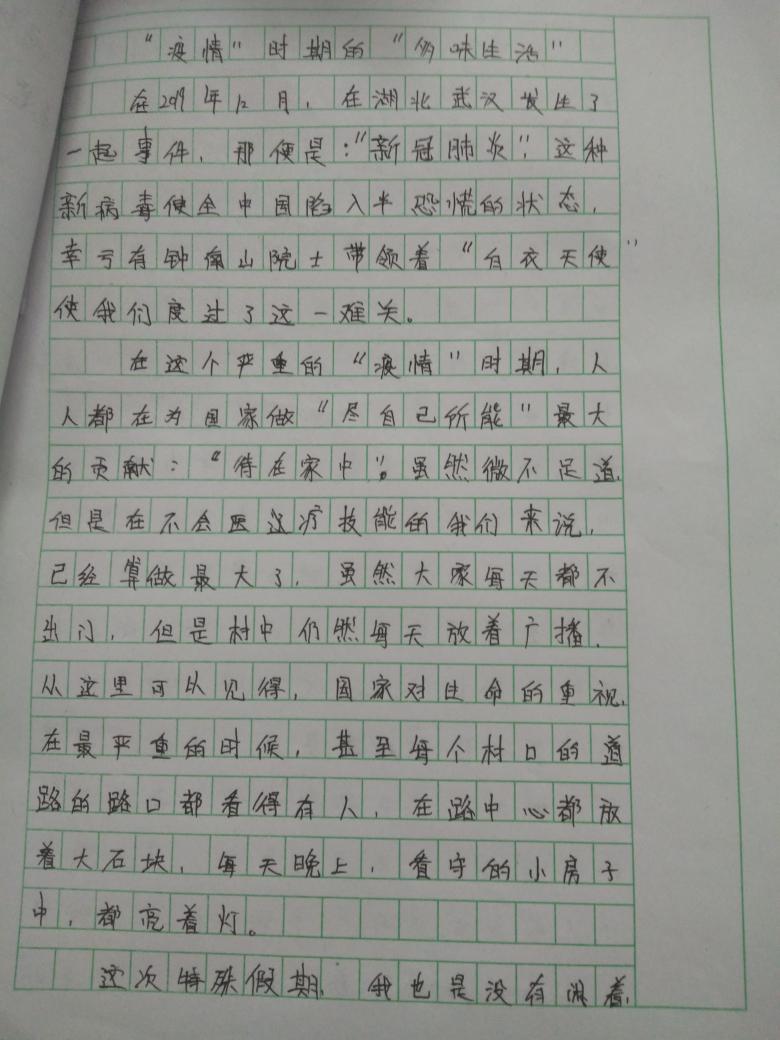 “疫情”时期的“多味生活”
在2019年12月，在湖北武汉发生了
一起事件，那便是：“新冠肺炎”。这种
新病毒使全中国陷入半恐慌的状态，
幸亏有钟南山院士带领着“白衣天使”
使我们度过了这一难关。
在这个严重的“疫情”时期，人
人都在为国家做“尽自己所能”最大
的贡献：“待在家中”。虽然微不足道，
但是在不会医疗技能的我们来说，
已经算做最大了，虽然大家每天都不
出门，但是村中仍然每天放着广播，
从这里可以见得，国家对生命的重视，
在最严重的时候，甚至每个村口的道
路的路口都看得有人，在路中心都放
着大石块，每天晚上，看守的小房子
中，都亮着灯。
这次特殊假期，我也是没有闲着，